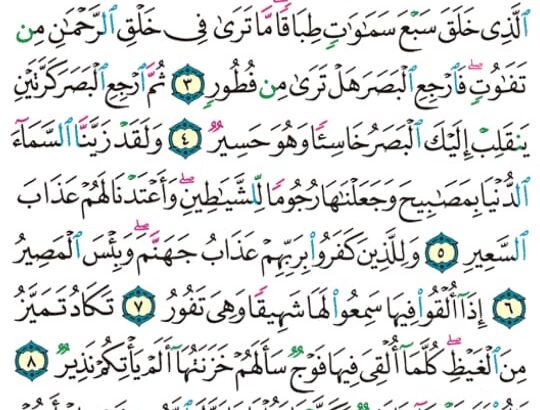 ٱلَّذِى خَلَقَ سَبْعَ سَمَٰوَٰتٍ طِبَاقًا ۖ مَّا تَرَىٰ فِى خَلْقِ ٱلرَّحْمَٰنِ مِن
تَفَٰوُتٍ ۖ فَٱرْجِعِ ٱلْبَصَرَ هَلْ تَرَىٰ مِن فُطُورٍ ٣ ثُمَّ ٱرْجِعِ ٱلْبَصَرَ كَرَّتَيْنِ
يَنقَلِبْ إِلَيْكَ ٱلْبَصَرُ خَاسِئًا وَهُوَ حَسِيرٌ ٤ وَلَقَدْ زَيَّنَّا ٱلسَّمَآءَ
ٱلدُّنْيَا بِمَصَٰبِيحَ وَجَعَلْنَٰهَا رُجُومًا لِّلشَّيَٰطِينِ ۖ وَأَعْتَدْنَا لَهُمْ عَذَابَ
ٱلسَّعِيرِ ٥ وَلِلَّذِينَ كَفَرُوا۟ بِرَبِّهِمْ عَذَابُ جَهَنَّمَ ۖ وَبِئْسَ ٱلْمَصِيرُ
٦ إِذَآ أُلْقُوا۟ فِيهَا سَمِعُوا۟ لَهَا شَهِيقًا وَهِىَ تَفُورُ ٧ تَكَادُ تَمَيَّزُ
مِنَ ٱلْغَيْظِ ۖ كُلَّمَآ أُلْقِىَ فِيهَا فَوْجٌ سَأَلَهُمْ خَزَنَتُهَآ أَلَمْ يَأْتِكُمْ نَذِيرٌ ٨